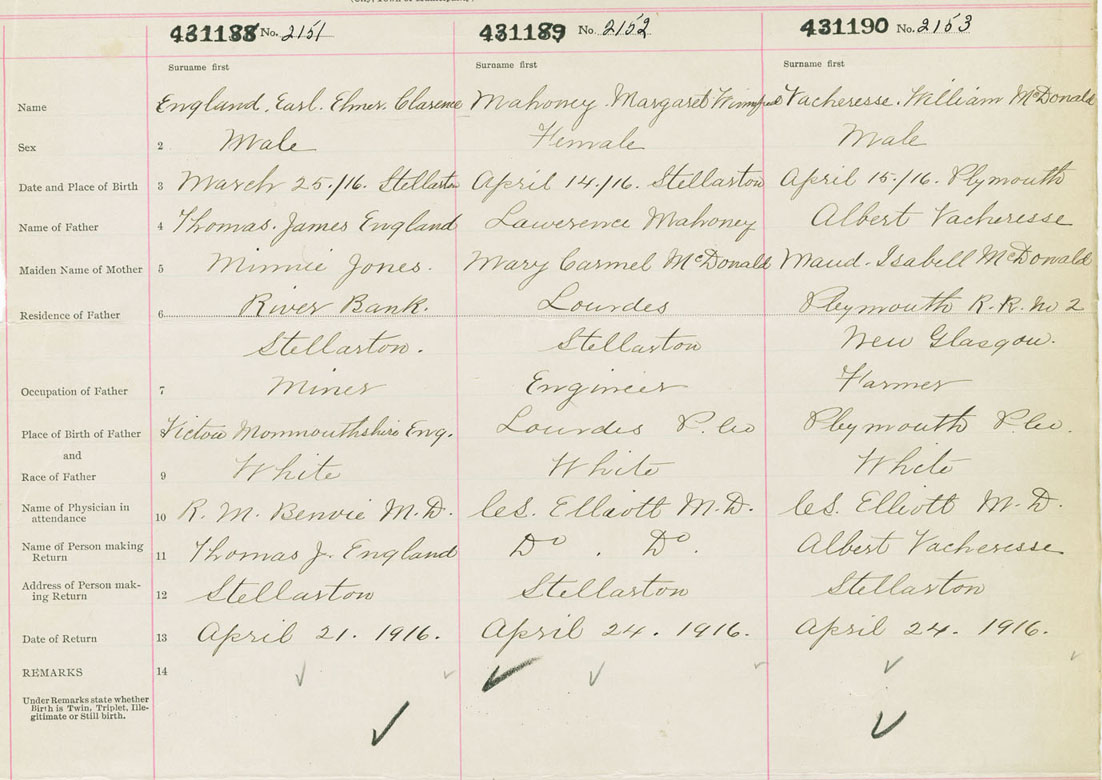 431188 No. 2151 431189 No. 2152 431190 No. 2153
Surname first Surname first Surname first
Name England. Earl. Elmer. Clarence Mahoney. Margaret Vacheresse. William McDonald
Sex 2 Male Female Male
Date and Place of Birth 3 March 25./16. Stellarton April 14./16. Stellarton April 15./16. Plymouth
Name of Father 4 Thomas. James England Lawerence Mahoney Albert Vacheresse
Maiden Name of Mother 5 Minnie Jones. Mary Carmel McDonald Maud. Isabell McDonald
Residence of Father 6 River Bank. Lourdes Pleymouth R. R. No 2
Stellarton. Stellarton New Glasgow.
Occupation of Father 7 Miner Engineer Farmer
Place of Birth of Father Monmouthshire Eng. Lourdes P. Co Pleymouth P. Co.
and
Race of Father 9 White White White
Name of Physician in
attendance 10 R. M. Benvie M. D. C.S. Elliott M. D. C.S. Elliott M. D.
Name of Person making
Return 11 Thomas J. England Do . Do . Albert Vacheresse
Address of Person mak-
ing Return 12 Stellarton Stellarton Stellarton
Date of Return 13 April 21. 1916. April 24. 1916. April 24. 1916.
REMARKS 14
Under Remarks state whether
Birth is Twin, Triplet, Ille-
gitimate or Still birth.